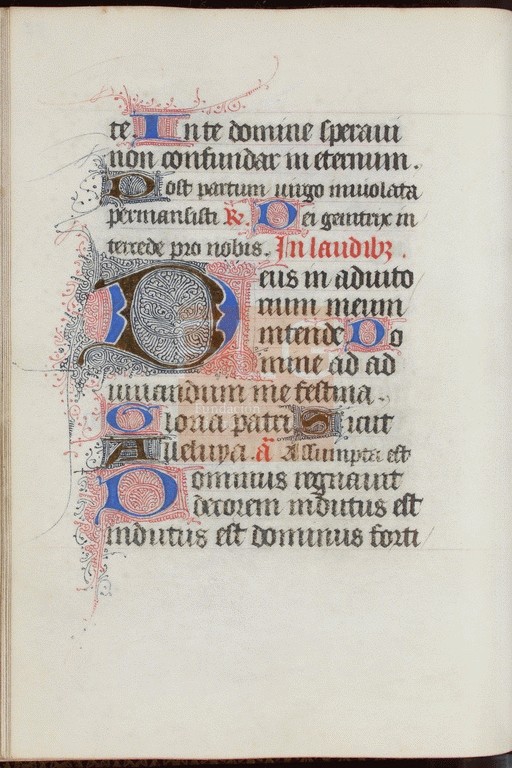 te. In te domine speraui
non confundar in eternum.
Post partum uirgo inuiolata
permansisti R. Dei genitrix in
tercede pro nobis. In laudibꝫ.
Deus in adiuto
rium meum
intende Do
mine ad ad
iuuandum me festina.
Gloria patri Sicut
Alleluya. a Assumpta est
Dominus regnauit
decorem indutus est
indutus est dominus forti
Fundación